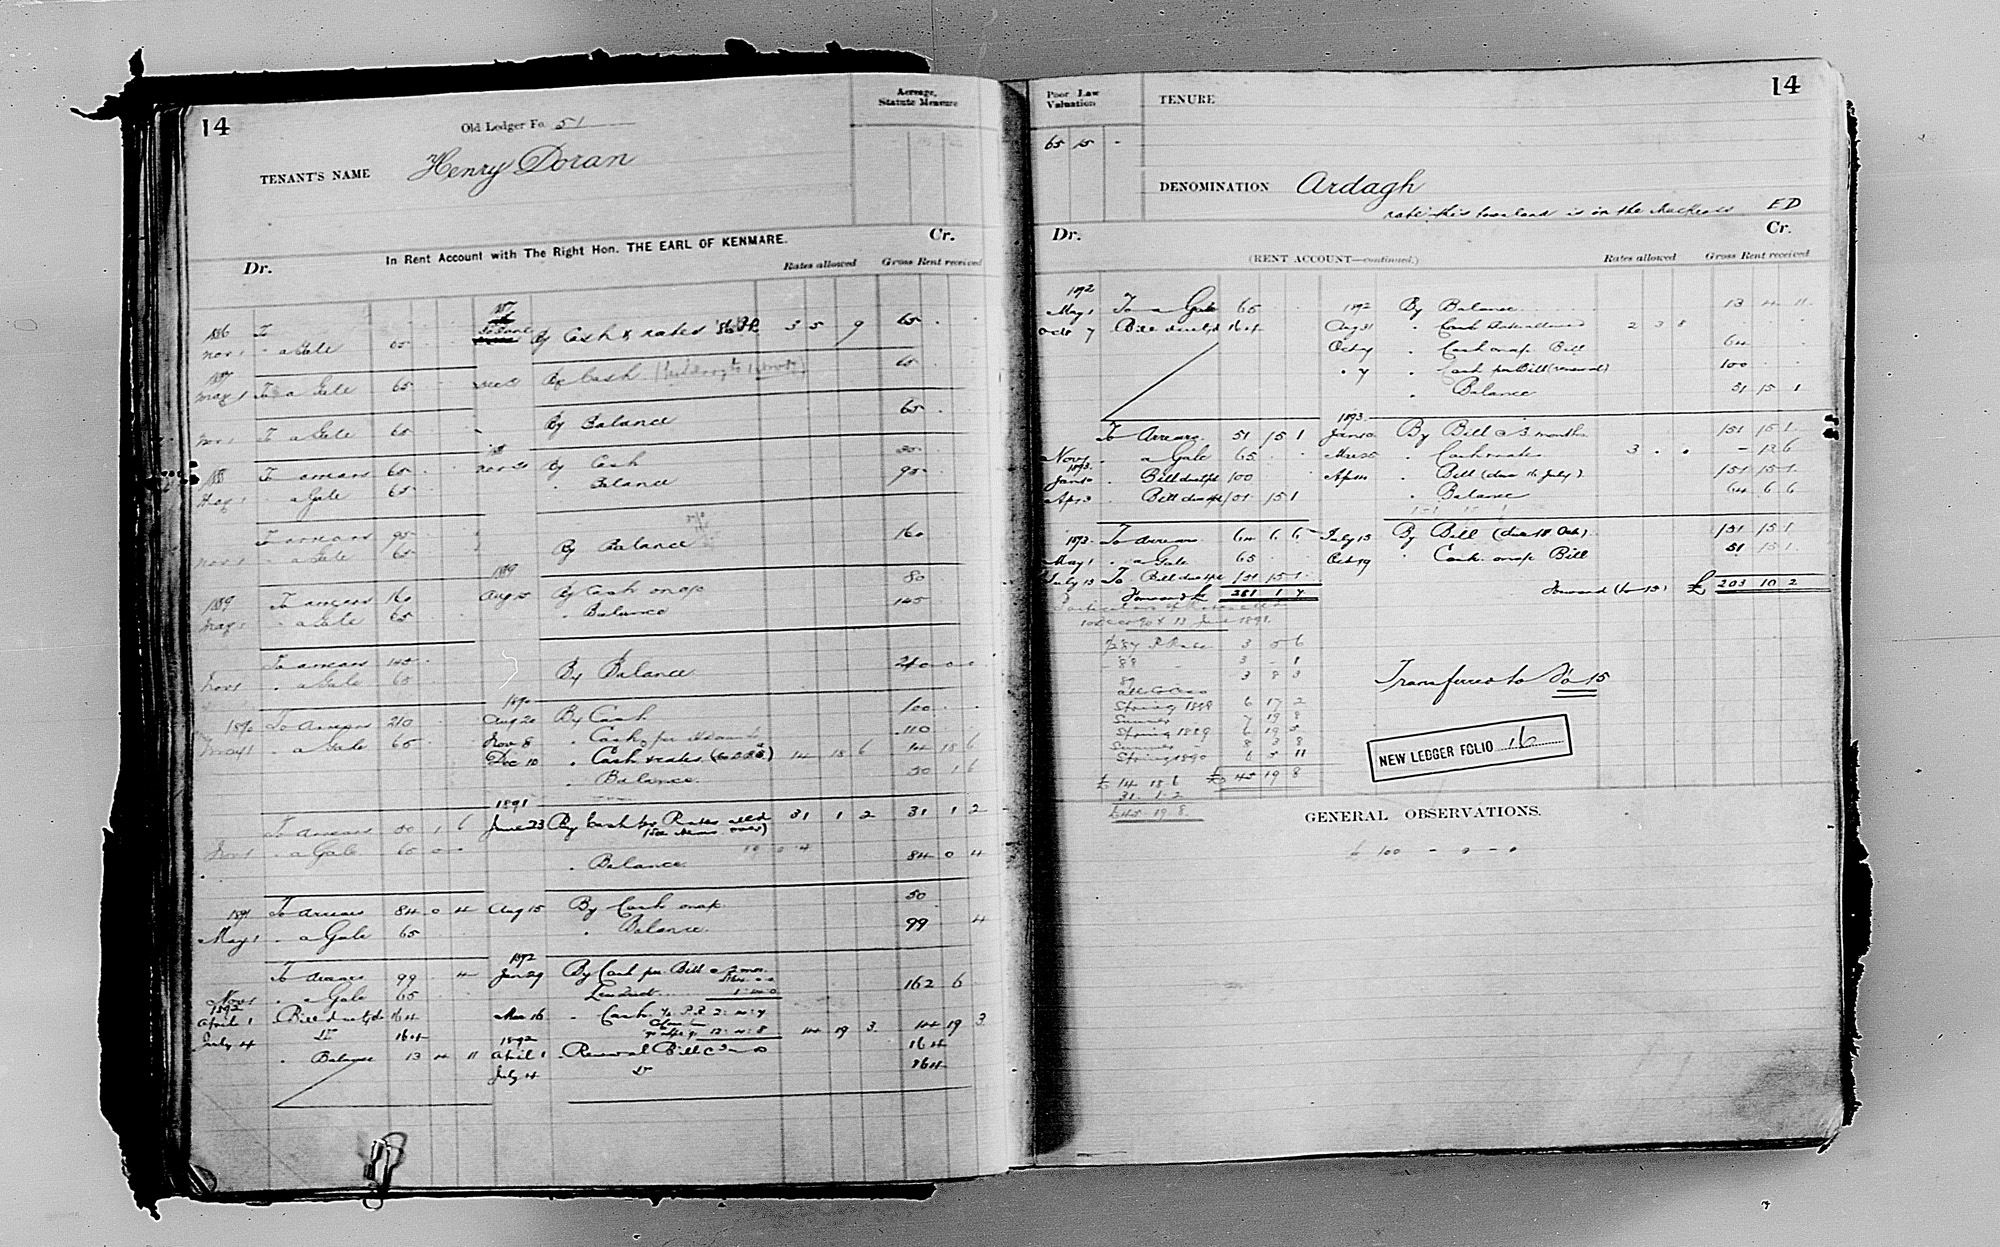 14
Old Ledger Fo. 51
Acreage,
Statute Measure
TENANT'S NAME Henry Doran
In Rent Account with The Right Hon. THE EARL OF KENMARE.
Dr. Cr.
Rates allowed Gross Rent received
1886 To
Nov 1 " a Gale 65 By Cash & rates '86 3 5 9 65
1887
May 1 To a Gale 65 By Cash 65
Nov 1 To a Gale 65 By Balance 65
188 To arrears 65 By Cash
May 1 " a Gale 65 " Balance 95
To arrears 95
Nov 1 " a Gale 65 By Balance 160
1889
1889 To arrears 160 Aug 15 By Cash on a/c 80
May 1 " a Gale 65 " Balance 145
To arrears 145
Nov 1 " a Gale 65 By Balance 210 0 0
1890
1890 To Arrears 210 Aug 20 By Cash 100
May 1 " a Gale 65 Nov 8 " Cash, per 110
Dec 10 " Cash & rates 14 18 6 14 18 6
" Balance 50 1 6
1891
To Arrears 50 1 6 June 23 By Cash for Rates alld 31 1 2 31 1 2
Nov 1 " a Gale 65 0 0
" Balance 84 0 4
1891 To arrears 84 0 4 Aug 15 By Cash on a/c 50
May 1 " a Gale 65 " Balance 99 4
1892
To Arrears 99 4 Jan 29 By Cash per Bill @ 3 mos.
Nov 1 " a Gale 65 162 6
1892
April 1 Bill 164 Mar 16 " Cash 14 19 3 14 19 3
July 4 Do 164 1892
" Balance 13 4 11 April 1 Renewal Bill 164
July 4 Do 164
14
Poor Law
Valuation
TENURE
65 15 -
DENOMINATION Ardagh
note this townland is in the ED
Dr. Cr.
(RENT ACCOUNT—continued.)
Rates allowed Gross Rent received
1892
May 1 To a Gale 65 1892 By Balance 13 4 11
Oct 7 Bill 164 Aug 31 " Cash 2 3 8
Oct 7 " Cash on a/c Bill 64
" 7 " Cash per Bill (renewal) 100
" Balance 51 15 1
1893
To Arrears 51 15 1 Jan 10 By Bill @ 3 months 151 15 1
Nov 1 " a Gale 65 " Cash 3 - 12 6
1893
Jan 10 " Bill 100 Ap " Bill (due 16 July) 151 15 1
Ap 3 " Bill 151 15 1 " Balance 64 6 6
1893 To Arrears 64 6 6 July 13 By Bill (due 18 Oct) 151 15 1
May 1 " a Gale 65 Oct 19 " Cash on a/c Bill 51 15 1
July 13 To Bill 151 15 1
Forward £ 281 1 7 Forward (to 15) £ 203 10 2
Particulars of Rates alld
13 June 1891.
'87 P. Rate 3 5 6
'88 " 3 - 1
89 3 8 3
Spring 1888 6 17 2
Summer 7 19 8
Spring 1889 6 19 5
Summer 8 3 8
Spring 1890 6 5 11
£ 14 18 6 £ 45 19 8
31 1 2
£ 45 19 8
Transferred to Fo 15
NEW LEDGER FOLIO 16
GENERAL OBSERVATIONS.
£ 100 - 0 - 0